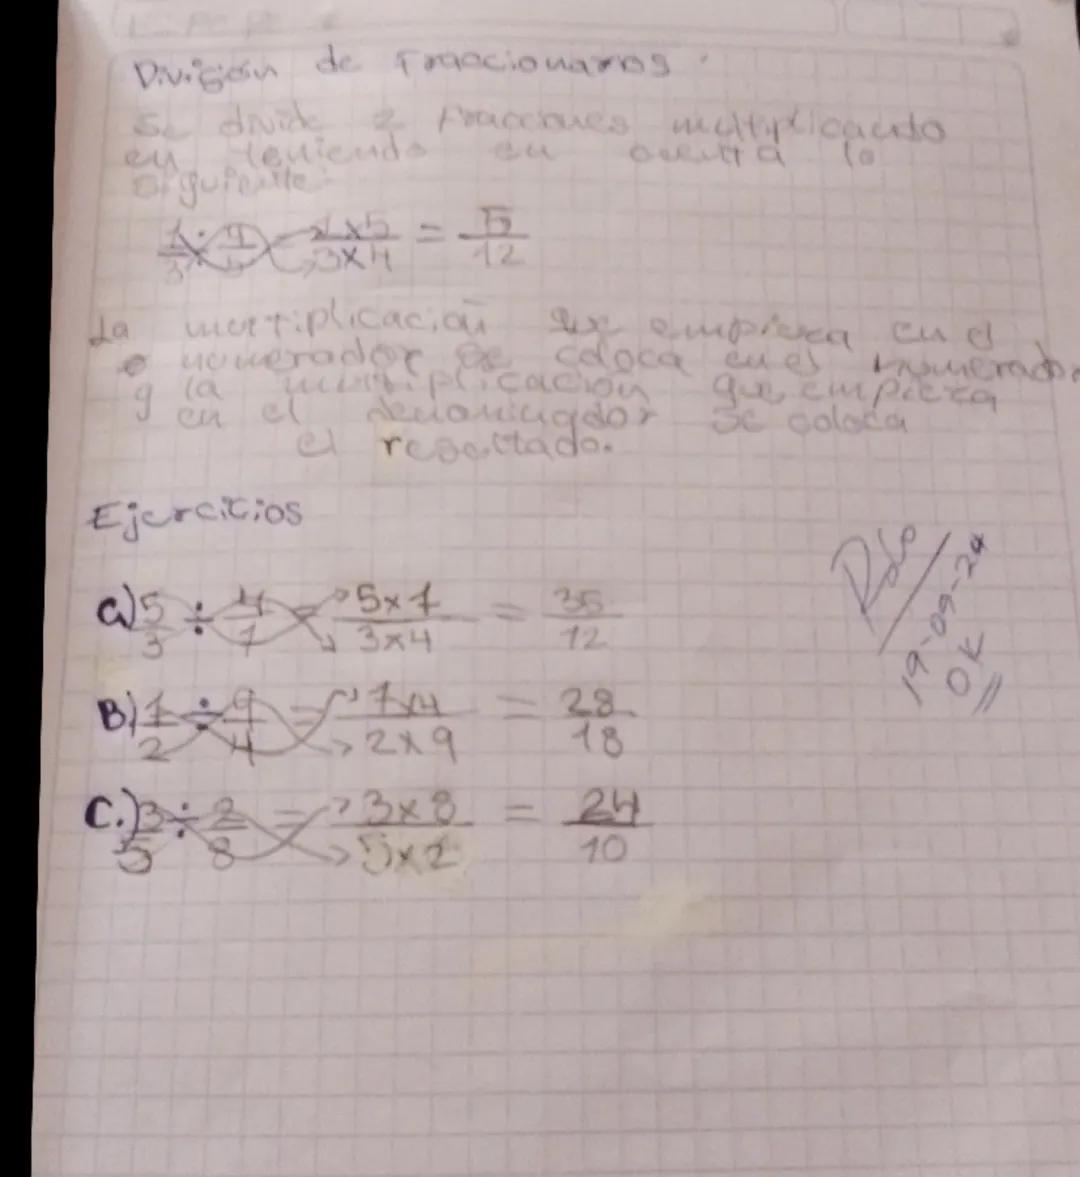 División de Fraccionarios.
Se divide 2 Fracciones multiplicando
en teniendo en cuenta lo
siguiente:
1/3 ÷ 4/5 = 1x5/3x4 = 5/12
La multiplicación que empieza en el
numerador se coloca en el numerador
y la multiplicación que empieza
en el denominador se coloca
el resultado.
Ejercicios
a) 5/3 ÷ 4/7 = 5x7/3x4 = 35/12
B) 7/2 ÷ 9/4 = 7x4/2x9 = 28/18
C.) 3/5 ÷ 2/8 = 3x8/5x2 = 24/10
19-09-24
OK